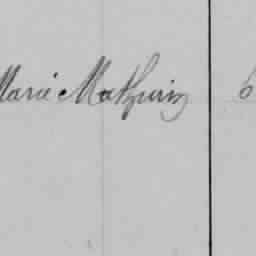 Marie Mathurin 6